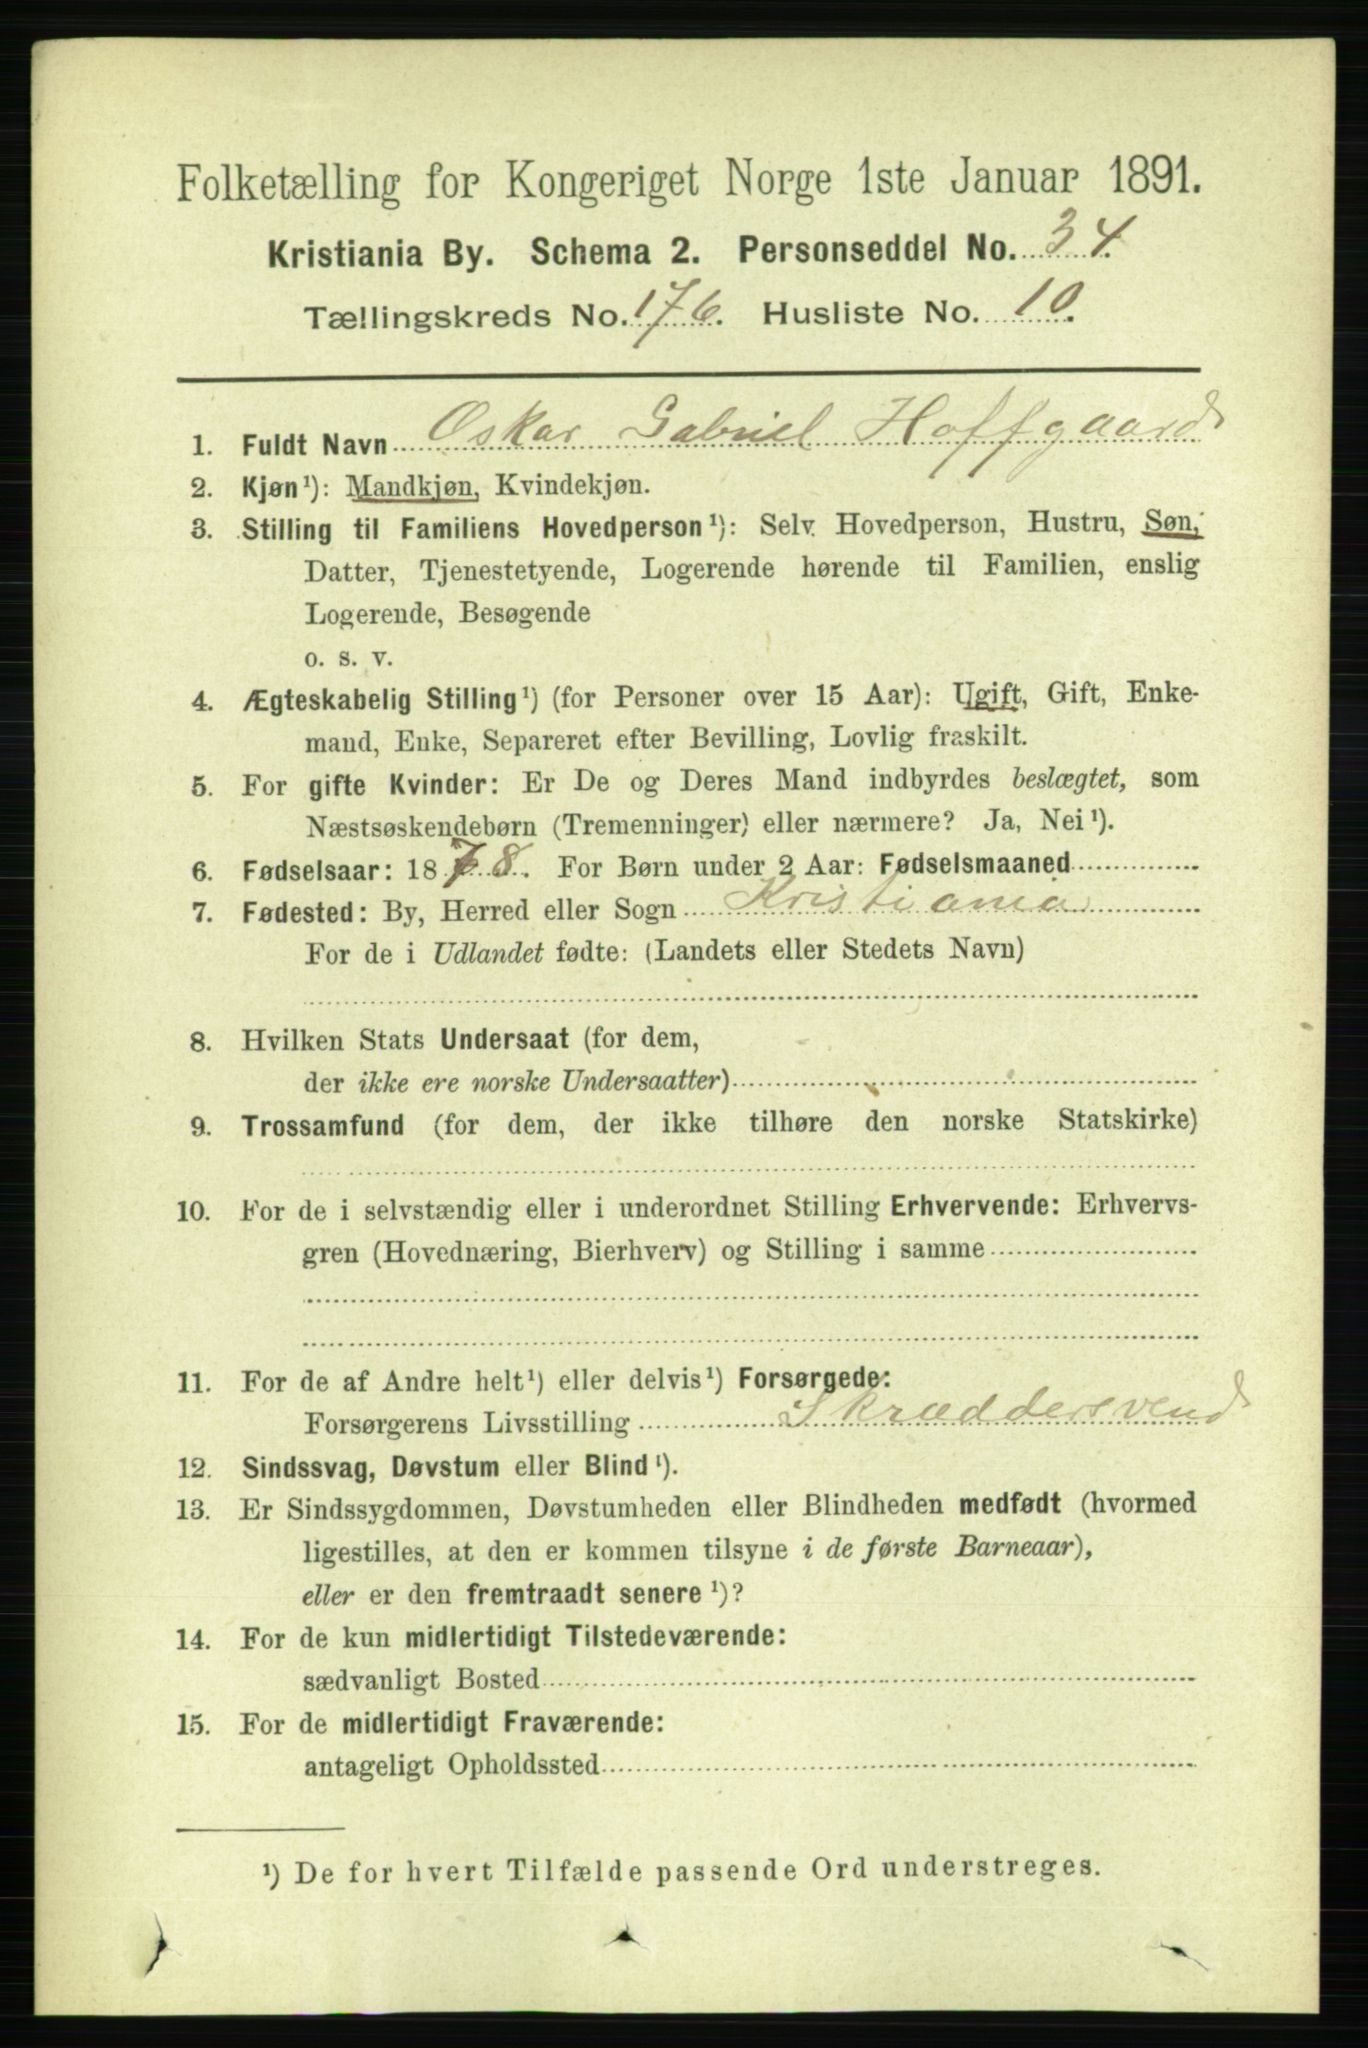 Folketælling for Kongeriget Norge 1ste Januar 1891.
Kristiania By. Schema 2. Personseddel No. 34.
Tællingskreds No. 176. Husliste No. 10.
1. Fuldt Navn Oskar Gabriel Hoffgaard
2. Kjøn¹): Mandkjøn, Kvindekjøn.
3. Stilling til Familiens Hovedperson¹): Selv. Hovedperson, Hustru, Søn,
Datter, Tjenestetyende, Logerende hørende til Familien, enslig
Logerende, Besøgende
o. s. v.
4. Ægteskabelig Stilling¹) (for Personer over 15 Aar): Ugift, Gift, Enke-
mand, Enke, Separeret efter Bevilling, Lovlig fraskilt.
5. For gifte Kvinder: Er De og Deres Mand indbyrdes beslægtet, som
Næstsøskendebørn (Tremenninger) eller nærmere? Ja, Nei¹).
6. Fødselsaar: 1878. For Børn under 2 Aar: Fødselsmaaned
7. Fødested: By, Herred eller Sogn Kristiania
For de i Udlandet fødte: (Landets eller Stedets Navn)
8. Hvilken Stats Undersaat (for dem,
der ikke ere norske Undersaatter)
9. Trossamfund (for dem, der ikke tilhøre den norske Statskirke)
10. For de i selvstændig eller i underordnet Stilling Erhvervende: Erhvervs-
gren (Hovednæring, Bierhverv) og Stilling i samme
11. For de af Andre helt¹) eller delvis¹) Forsørgede:
Forsørgerens Livsstilling Skræddersvend
12. Sindssvag, Døvstum eller Blind¹).
13. Er Sindssygdommen, Døvstumheden eller Blindheden medfødt (hvormed
ligestilles, at den er kommen tilsyne i de første Barneaar),
eller er den fremtraadt senere¹)?
14. For de kun midlertidigt Tilstedeværende:
sædvanligt Bosted
15. For de midlertidigt Fraværende:
antageligt Opholdssted
¹) De for hvert Tilfælde passende Ord understreges.